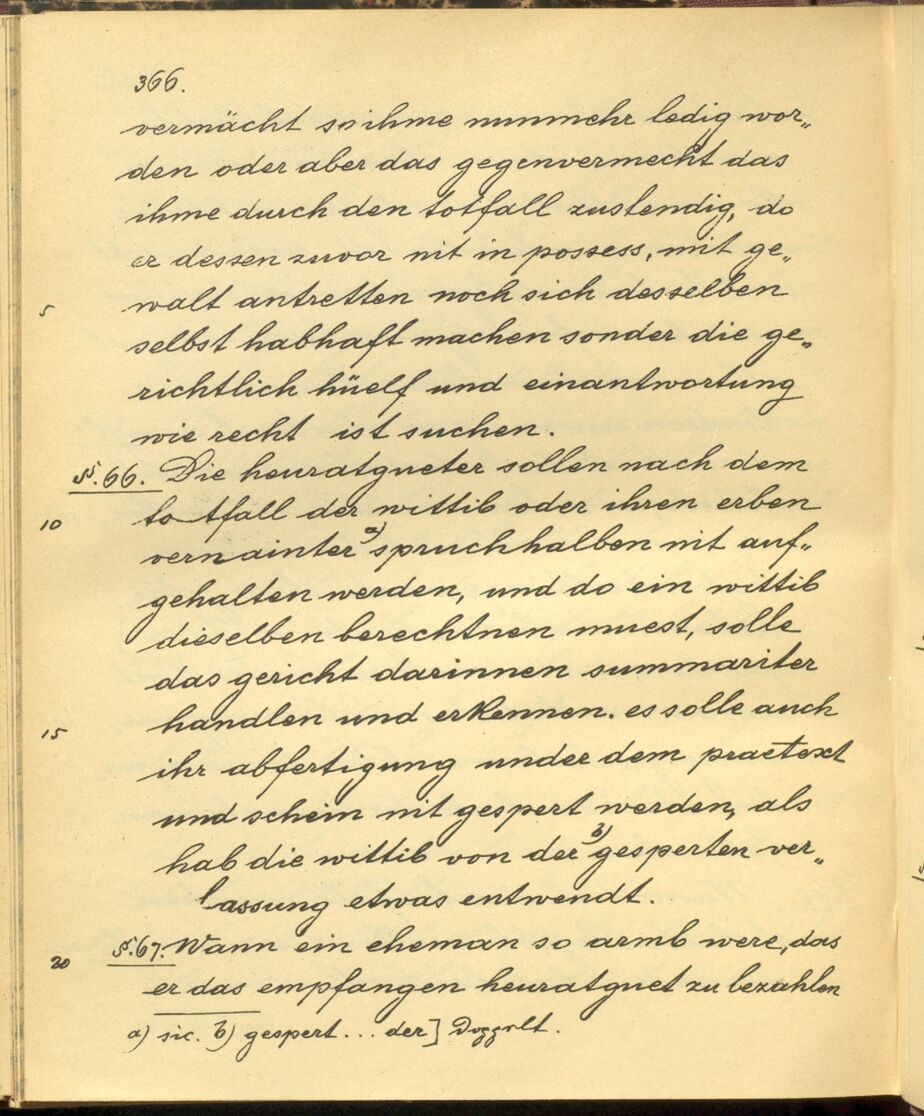 366.
vermächt so ihme nunmehr ledig wor„
den oder aber das gegenvermecht das
ihme durch den totfall zustendig, do
er dessen zuvor nit in possess, mit ge„
5 walt antretten noch sich desselben
selbst habhaft machen sonder die ge„
richtlich hüelf und einantwortung
wie recht ist suchen.
§.66. Die heuratgueter sollen nach dem
10 totfall der wittib oder ihren erben
vernainter a) spruch halben nit auf„
gehalten werden, und do ein wittib
dieselben berechtnen muest, solle
das gericht darinnen summariter
15 handlen und erkennen. es solle auch
ihr abfertigung under dem praetext
und schein nit gespert werden, als
hab die wittib von der b) gesperten ver„
lassung etwas entwendt.
20 §.67. Wann ein eheman so armb were, das
er das empfangen heuratguet zu bezahlen
a) sic. b) gespert ... der] Doppelt.